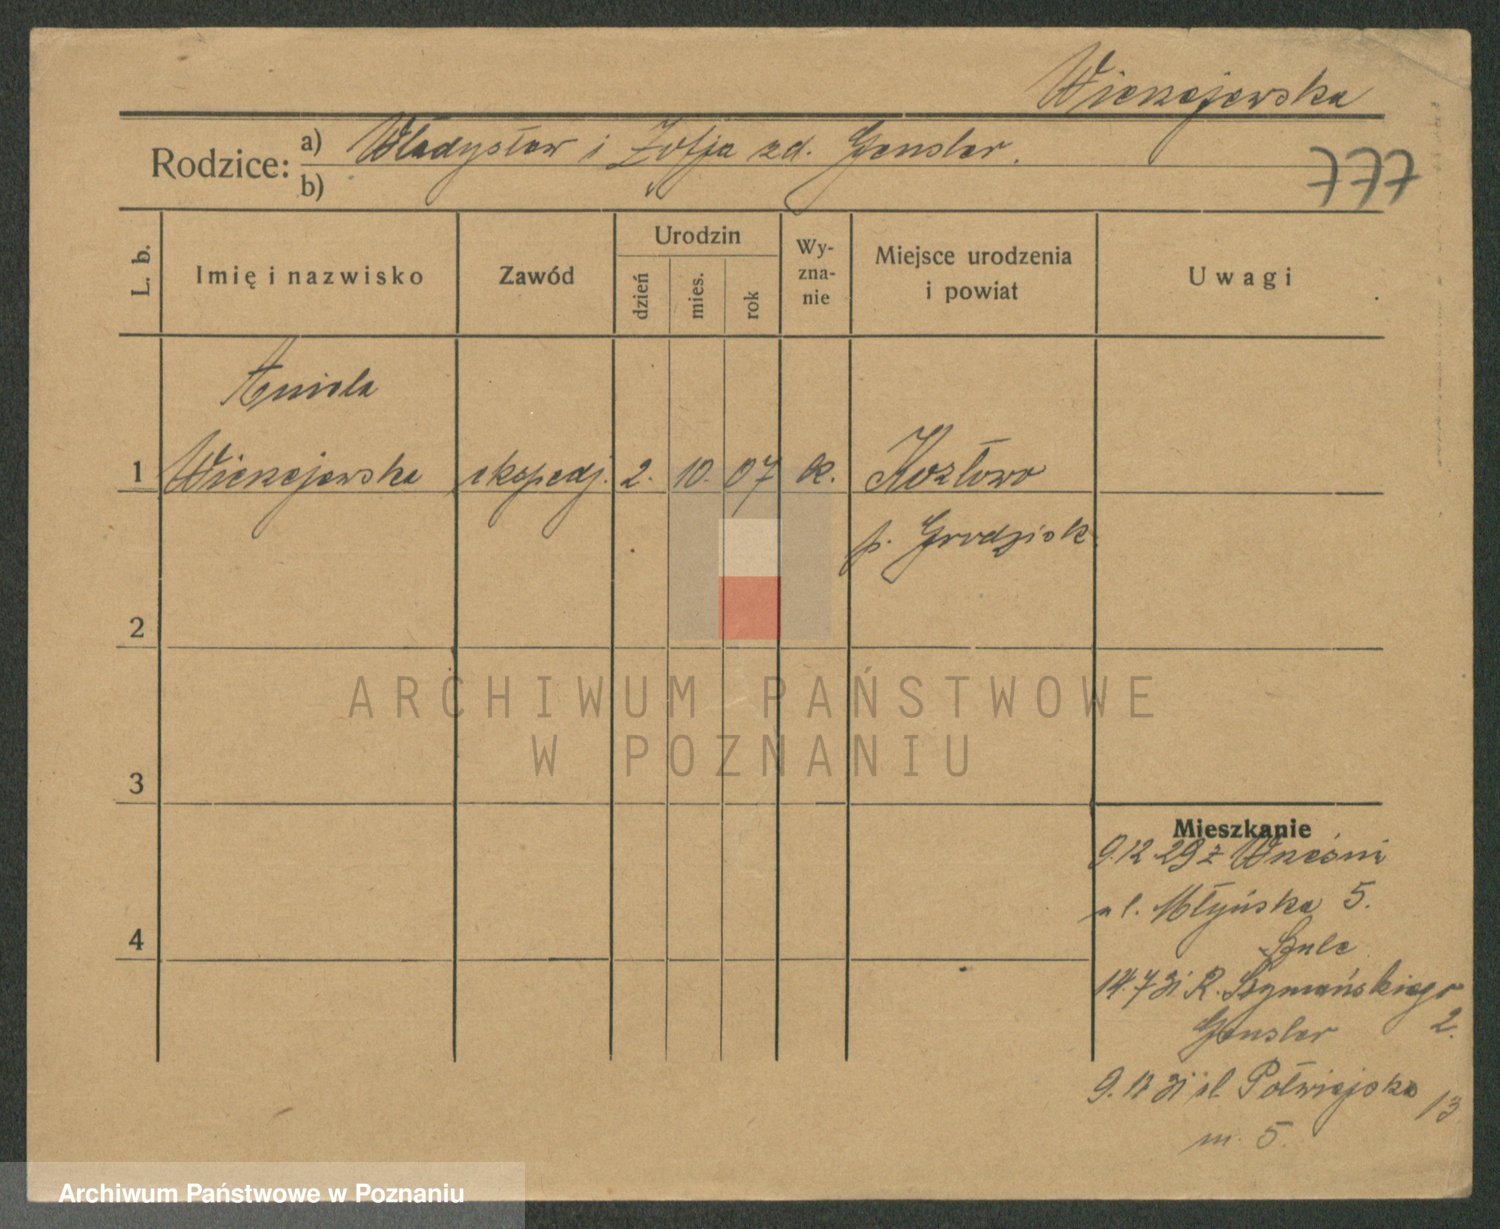 Wienejewska
Rodzice: a) Władysław i Zofja zd. Gensler.
b)
777
L. b.
Imię i nazwisko
Zawód
Urodzin
dzień
mies.
rok
Wy-
zna-
nie
Miejsce urodzenia
i powiat
Uwagi
Aniela
1 Wienejewska ekspedj. 2. 10. 07 k. Kozłowo
p. Grodzisk
2
ARCHIWUM PAŃSTWOWE
W POZNANIU
3
Mieszkanie
9.12.29 z Wrześni
ul. Młyńska 5.
Szulc
4
14.7.31 R. Szymańskiego
2.
Gensler
ul. Półwiejska 13
m. 5.
Archiwum Państwowe w Poznaniu